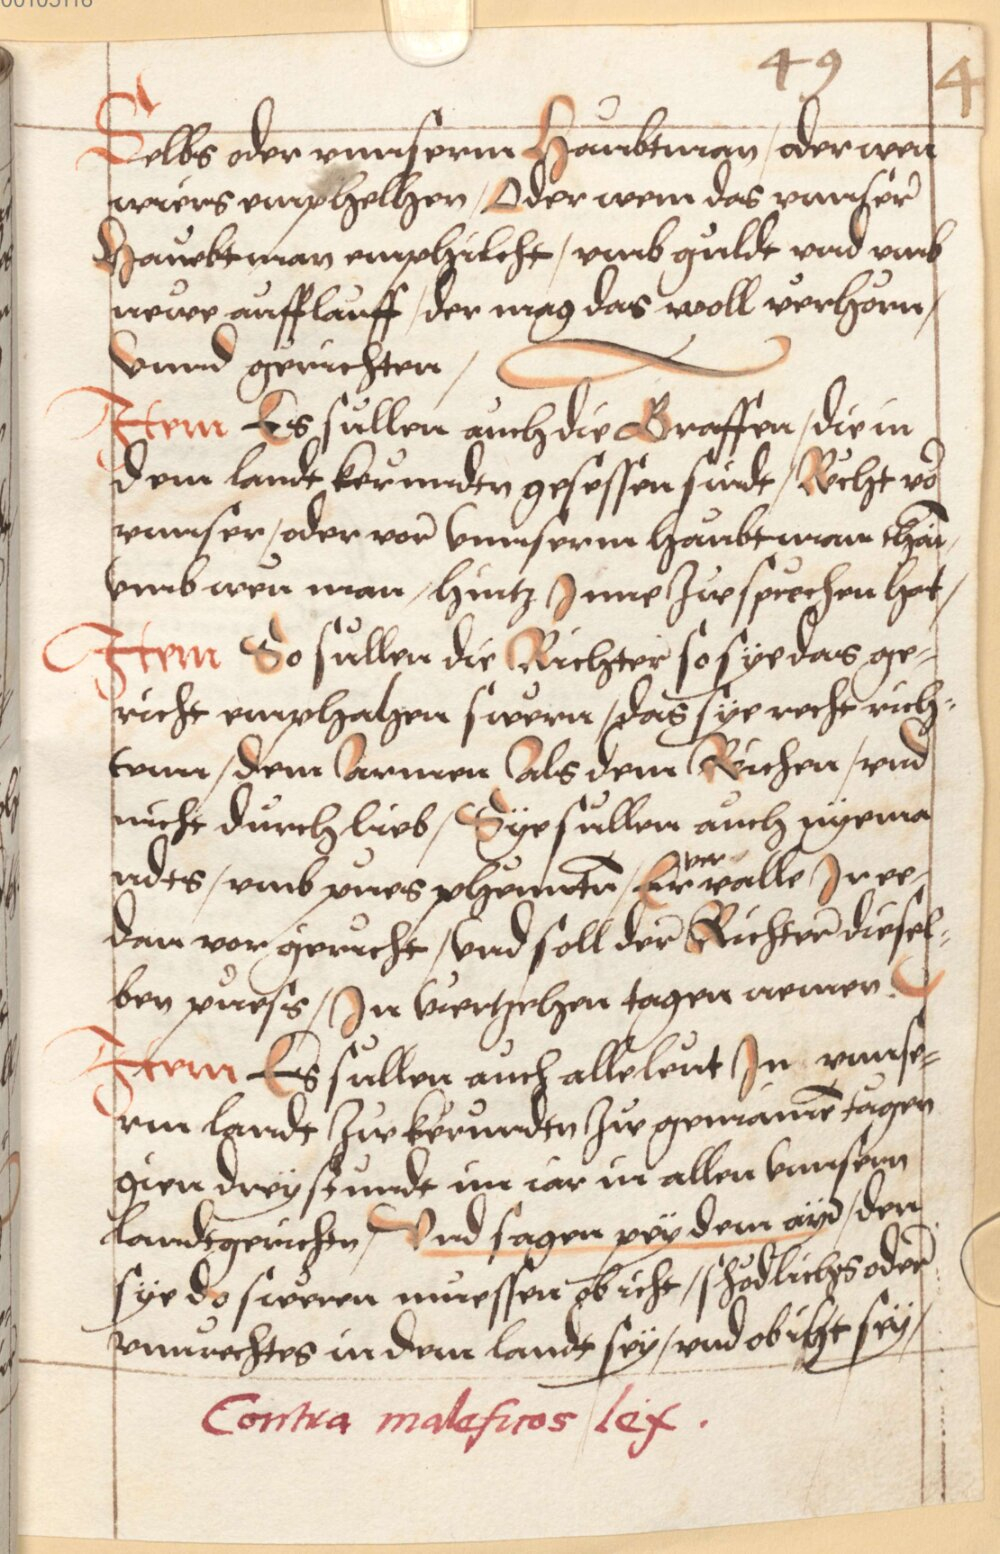 00105118
49
4
Selbs oder vnnserm Haubtman / oder wen
wiers emphelhen / Oder wem das vnnser
Hauebtman emphilcht / vmb guldt vnd vmb
newe aufflauff / der mag das woll verhorn /
Vnnd gerichten /
Item Es sullen auch die Graffen / die in
dem landt kernndtn gesessen sindt / Recht vor
vnnser / oder vor Vnnserm haubtman than /
Vmb wen man / hintz Inne Zwsprechen hat /
Item So sullen die Richter so sye das ge-
richt emphahen swern / das sye recht rich-
tenn / dem Armen Als dem Richen / vnd
nicht durch lieb / Sye sullen auch nyema
ndts / vmb pues phenntn / Er ver valle In ee /
dan vor gericht / Vnd soll der Richter diesel-
ben puess / In Viertzehen tagen nemen
Item Es sullen auch alle leut In vnnse-
rm landt Zw kernndtn Zw gemaine tagen
gien drey stundt im iar in allen Vnnsern
landtgerichtn / Vnd sagen pey dem ayd / den
sye do sweren muessen ob icht / schodlichs oder
vnnrechtes in dem landt sey / vnd ob icht sey /
Contra maleficos lex .